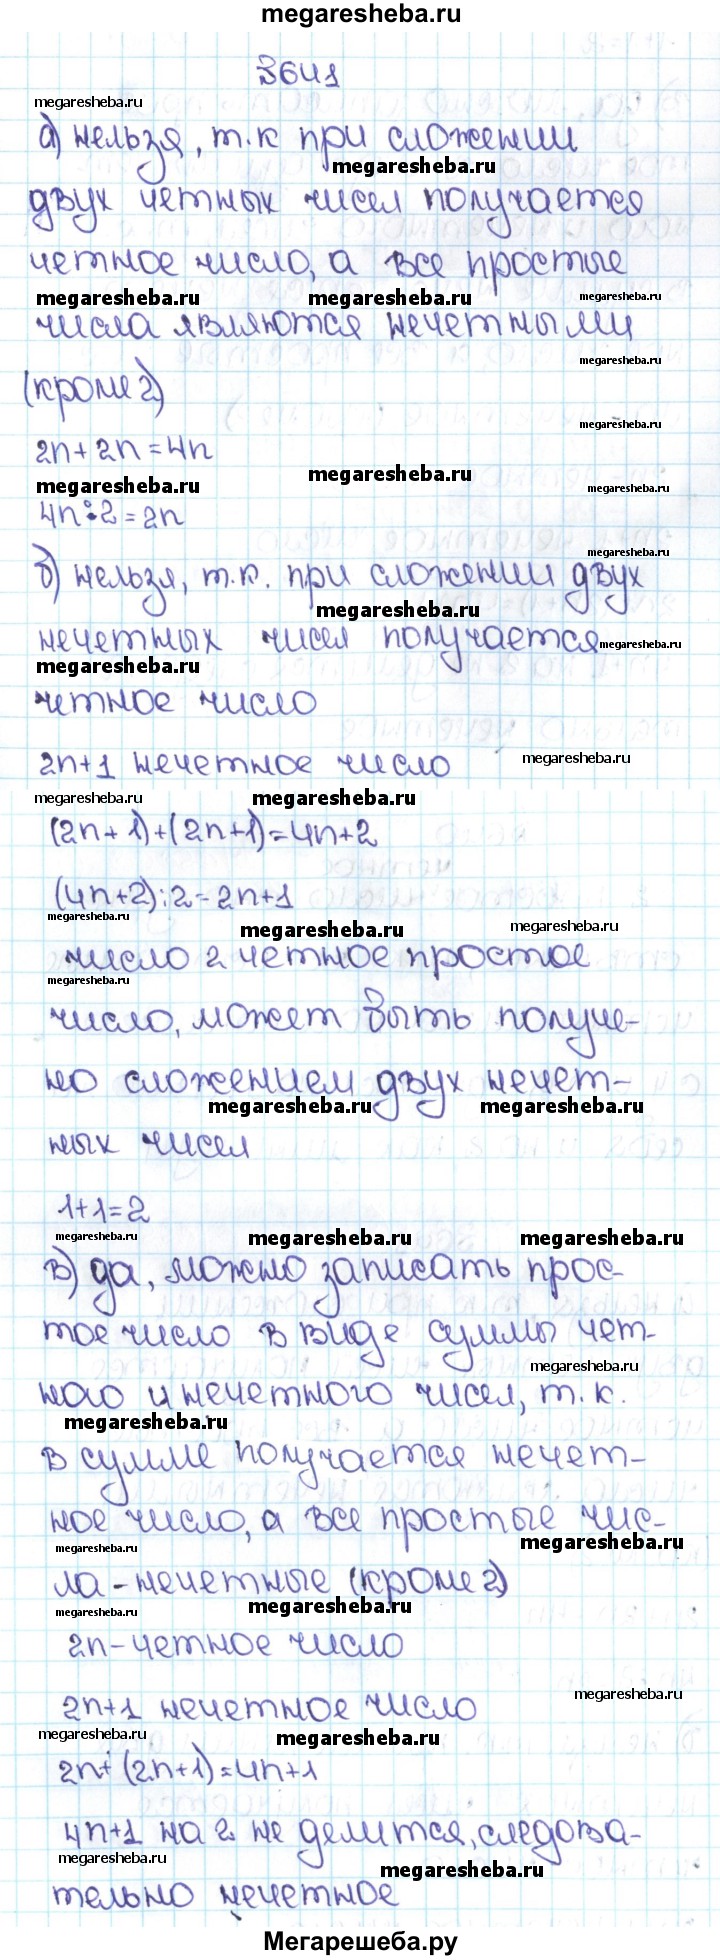 megaresheba.ru
3641
megaresheba.ru
а) нельзя, т.к при сложении
megaresheba.ru
двух четных чисел получается
четное число, а все простые
megaresheba.ru megaresheba.ru megaresheba.ru
числа являются нечетными
megaresheba.ru
(кроме 2)
megaresheba.ru
2n+2n=4n
megaresheba.ru
megaresheba.ru megaresheba.ru
4n:2=2n
megaresheba.ru
б) нельзя, т.к. при сложении двух
megaresheba.ru
нечетных чисел получается
megaresheba.ru
megaresheba.ru
четное число
2n+1 нечетное число
megaresheba.ru
megaresheba.ru megaresheba.ru
(2n+1)+(2n+1)=4n+2
(4n+2):2=2n+1
megaresheba.ru
megaresheba.ru megaresheba.ru
число 2 четное простое
megaresheba.ru
число, может быть получе-
но сложением двух нечет-
megaresheba.ru megaresheba.ru
ных чисел
1+1=2
megaresheba.ru megaresheba.ru megaresheba.ru
в) да, можно записать прос-
тое число в виде суммы чет-
megaresheba.ru
ного и нечетного чисел, т.к.
megaresheba.ru
в сумме получается нечет-
ное число, а все простые чис-
megaresheba.ru megaresheba.ru
ла - нечетные (кроме 2)
megaresheba.ru megaresheba.ru
2n - четное число
2n+1 нечетное число
megaresheba.ru
megaresheba.ru megaresheba.ru
2n+(2n+1)=4n+1
4n+1 на 2 не делится, следова-
megaresheba.ru megaresheba.ru
тельно нечетное
Мегарешеба.ру